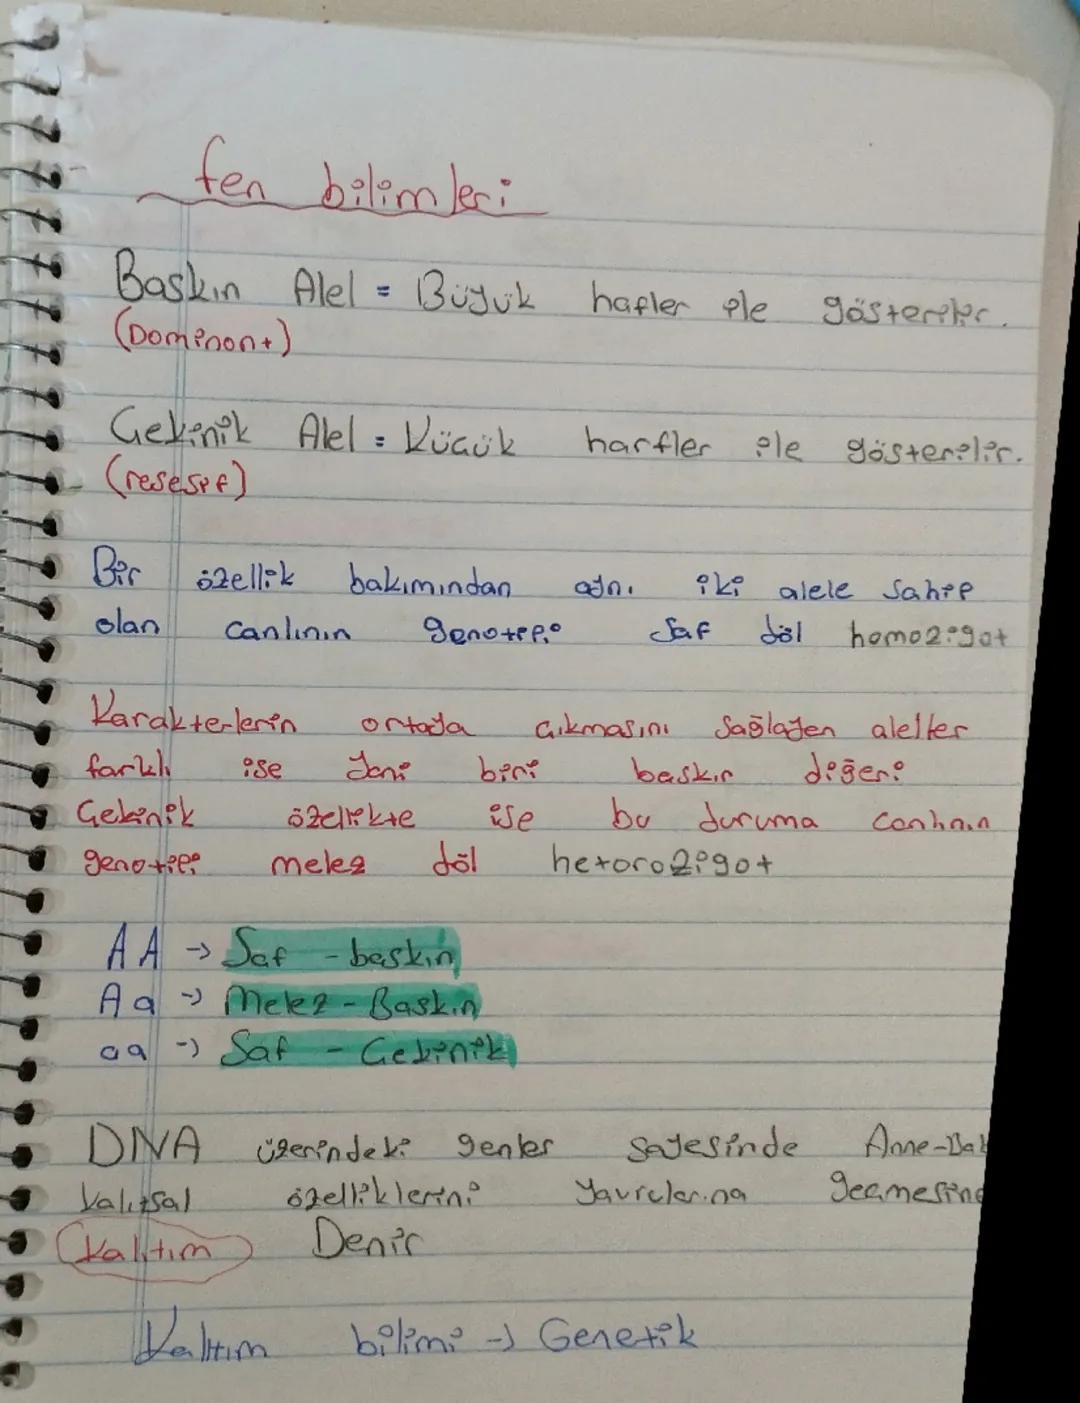 fen bilimleri
Baskın Alel = Büyük hafler ile gösterilir.
(Dominant)
Çekinik Alel = Kücük harfler ile gösterilir.
(resesif)
Bir özellik bakımından aynı iki alele sahip
olan canlının genotipi Saf döl homozigot
Karakterlerin ortaya çıkmasını sağlayan aleller
farklı ise Yani biri baskın diğeri
Çekinik özellikte ise bu duruma canlının
genotipi melez döl hetorozigot
AA -> Saf - baskın
Aa -> Melez - Baskın
aa -> Saf - Çekinik
DNA üzerindeki genler sayesinde Anne-Bab
kalıtsal özelliklerini Yavrularına geçmesine
Kalıtım Denir
Kalıtım bilimi -> Genetik